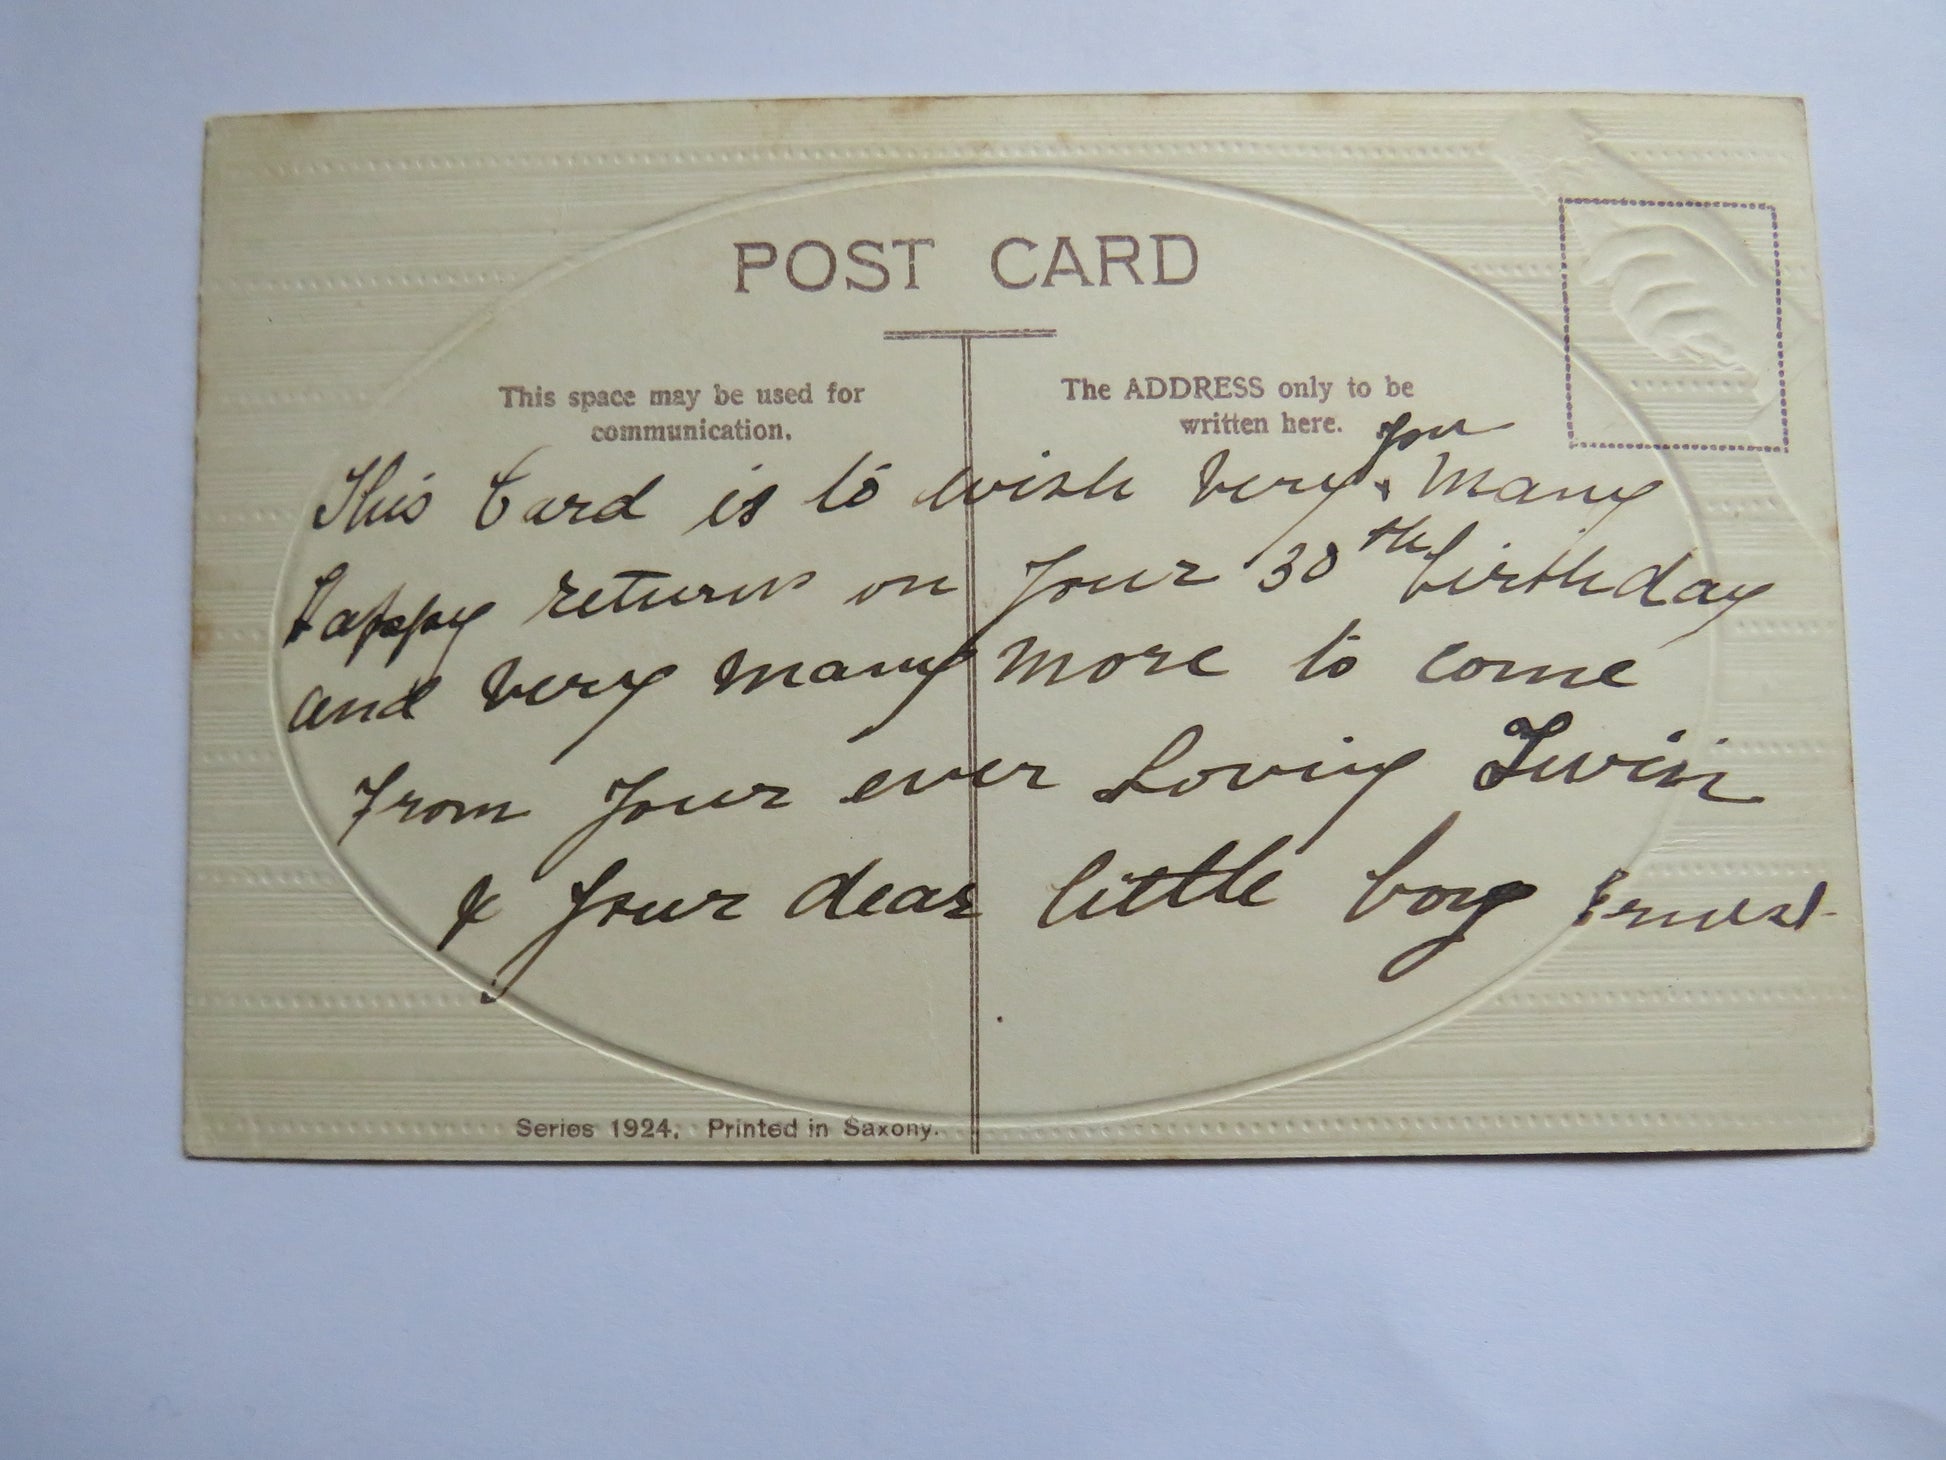 POST CARD
This space may be used for
communication.
The ADDRESS only to be
written here.
you
This Card is to wish very many
happy returns on your 30th birthday
and very many more to come
from your ever Loving Twin
& your dear little boy Ernest
Series 1924. Printed in Saxony.